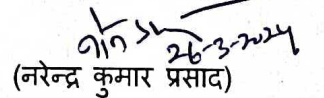 26-3-2024
(नरेन्द्र कुमार प्रसाद)